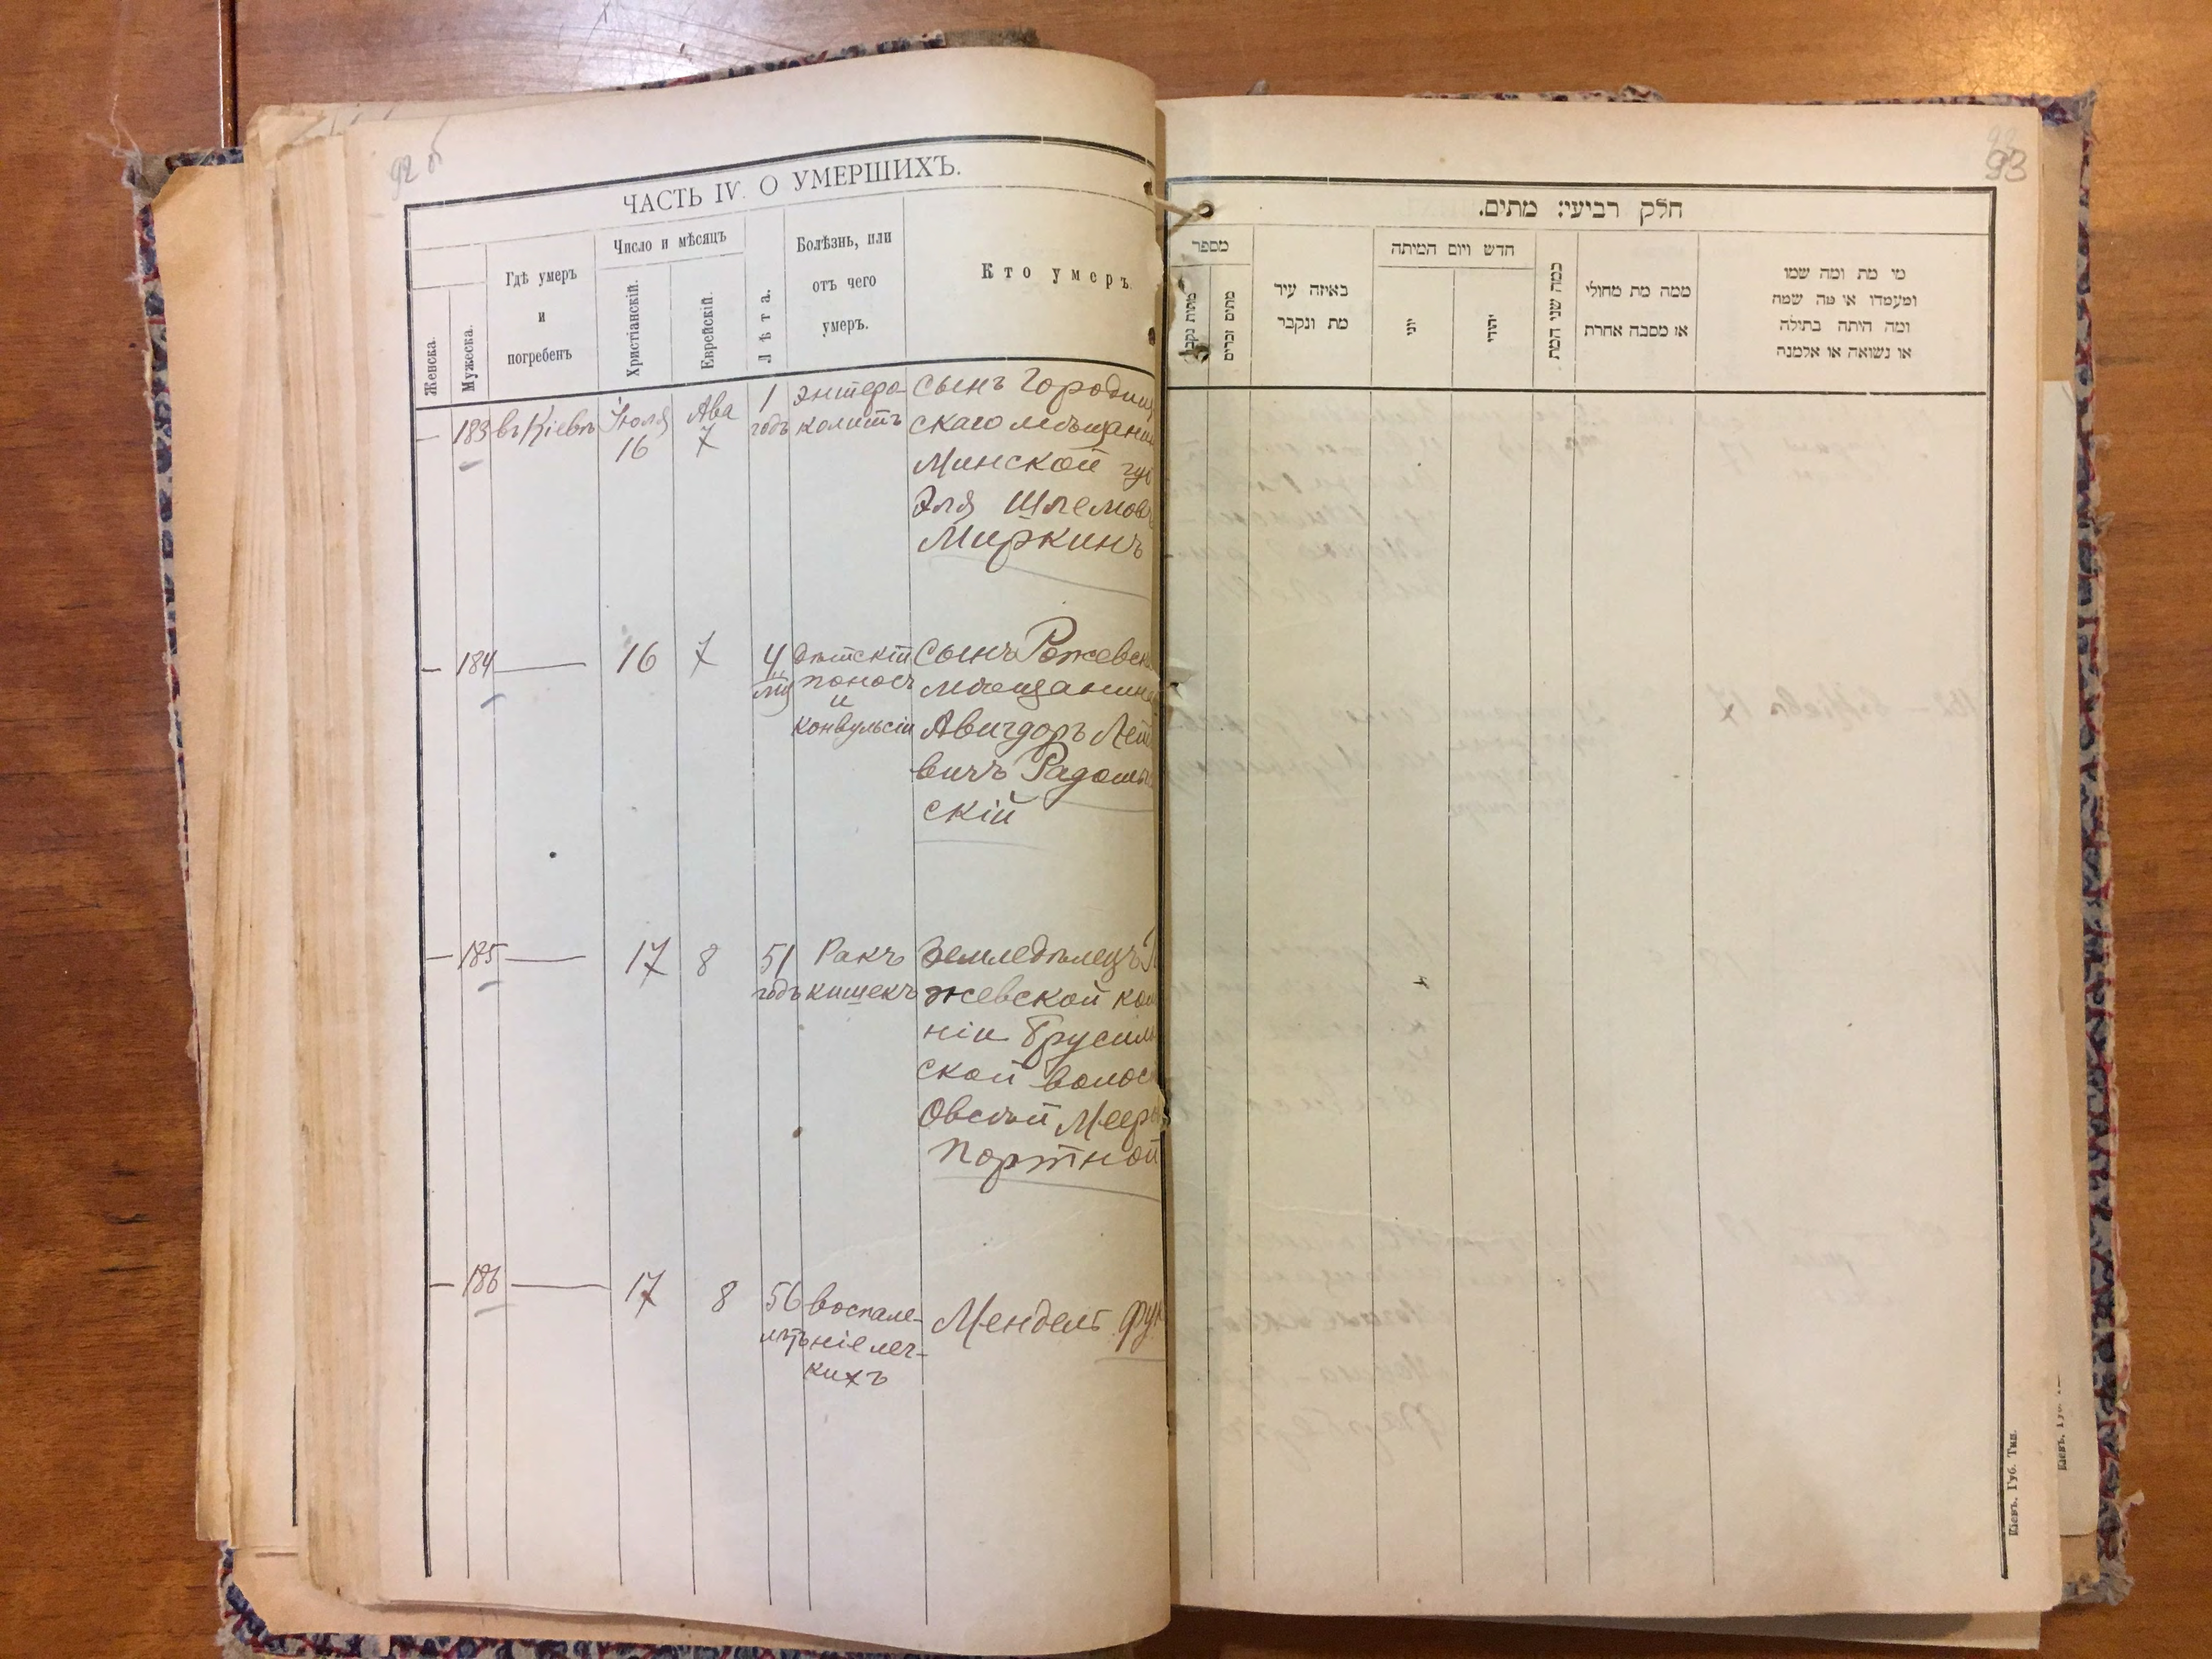 92 об
ЧАСТЬ IV. О УМЕРШИХЪ.
Женска.
Мужеска.
Гдѣ умеръ
и
погребенъ
Число и мѣсяцъ
Христіанскій.
Еврейскій.
Лѣта.
Болѣзнь, или
отъ чего
умеръ.
Кто умеръ.
— 183 въ Кіевѣ Іюля 16 Ава 7 1 годъ энтеро-
колитъ
сынъ Городищ
скаго мѣщанин
Минской губ
Эля Шлемов
Миркинъ
— 184 — 16 7 4 мц дѣтскій
поносъ
и
конвульсіи
сынъ Рожевск
мѣщанина
Авигдоръ Лей
вичъ Радомы
скій
— 185 — 17 8 51 годъ Ракъ
кишекъ
Земледѣлецъ Р
жевской коло
ніи Брусил
ской волос
Овсѣй Меер
Портной
— 186 — 17 8 56 лѣтъ воспале-
ніе лег-
кихъ
Мендель Фук
93
חלק רביעי: מתים.
מספר
מתות נקבות
מתים זכרים
באיזה עיר
מת ונקבר
חדש ויום המיתה
יוני
יהודי
כמה שני המת.
ממה מת מחולי
או מסבה אחרת
מי מת ומה שמו
ומעמדו או מה שמה
ומה היתה בתולה
או נשואה או אלמנה
Кіевъ, Губ. Тип.